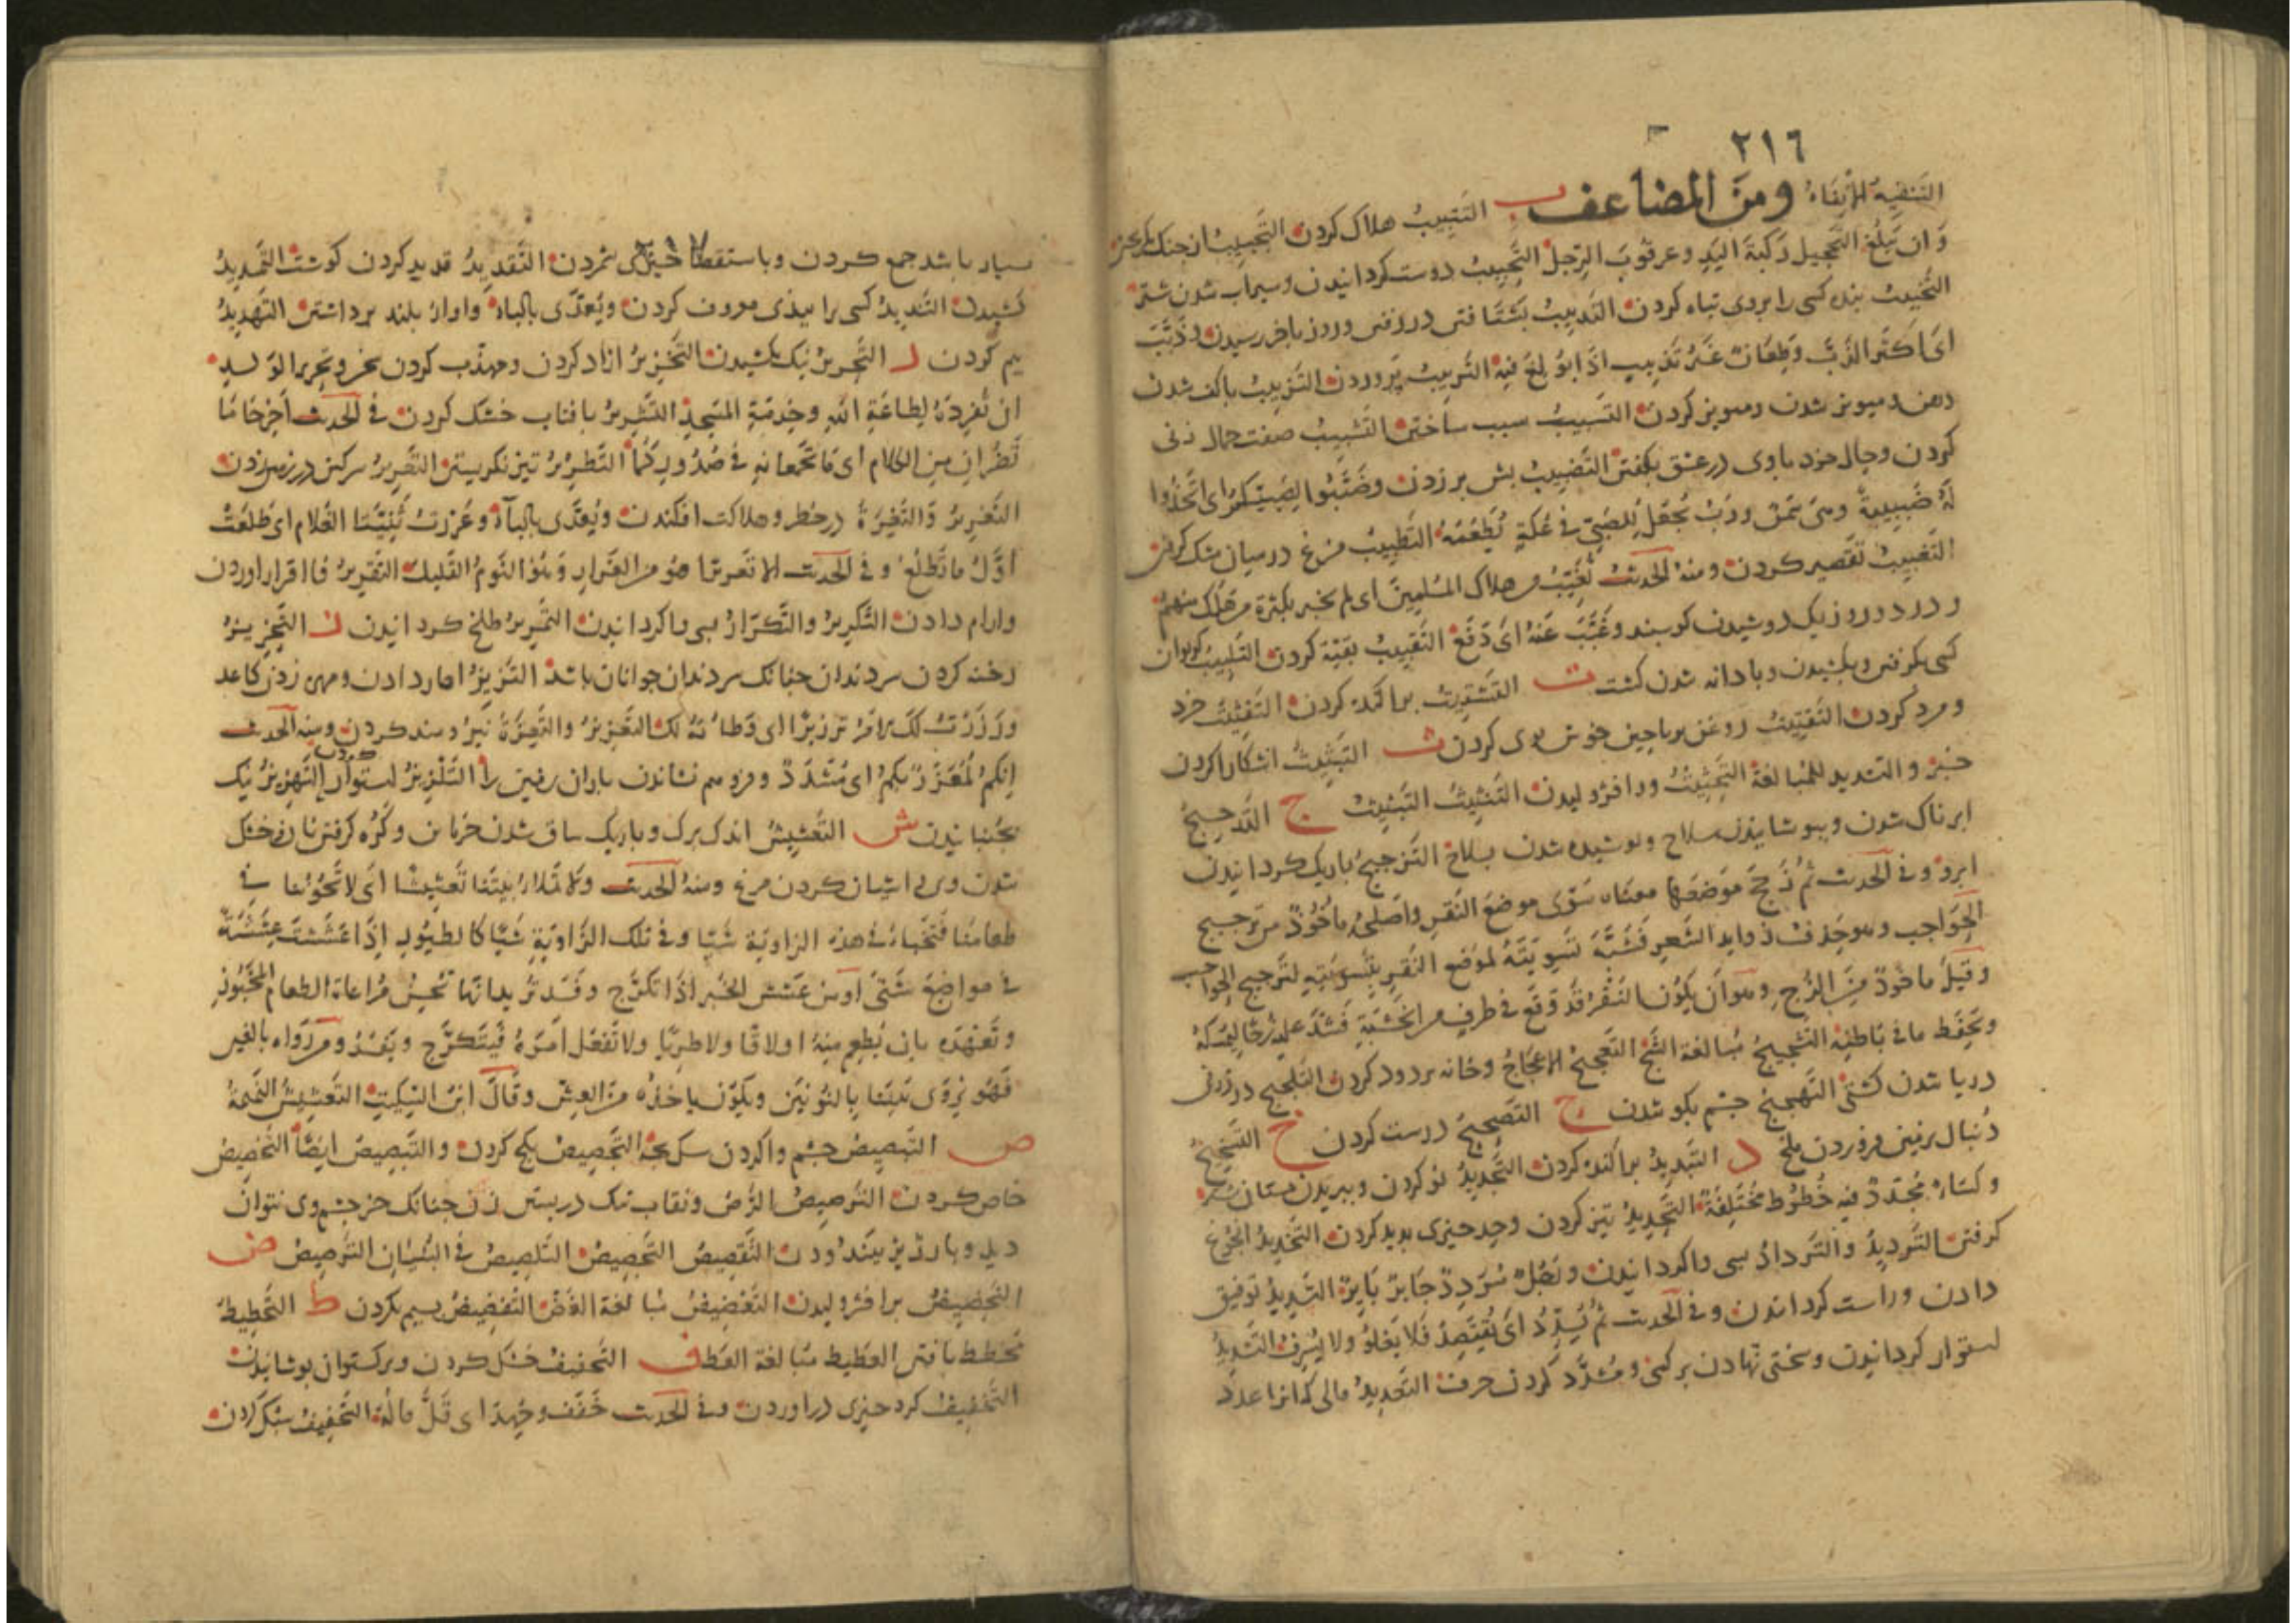 ٢١٦
التنقيه الانقاء ومن المضاعف ب التَتبيبُ هلاك كردن التَجبيب از جنك
وَان تبلغ التحجيل رَكبَةَ اليَدِ وعرقوبَ الرِجل التَحبيبُ دوست كردانيدن وسيراب شدن شتر
التَخبيبُ بنده كسى را بروى تباه كردن التَذبيبُ بشتافتن در رفتن وروز باخر رسيدن وذَبَّبَ
اى اكثر الذَبَّ وَطِعَانٌ غَيرُ تَذبيبٍ اذَا بُولِغَ فيه التَربيبُ پروردن التَزبيبُ باكف شدن
دهن ومويز شدن ومويز كردن التَسبيبُ سبب ساختن التَشبيبُ صفت جمال زنى
كردن وحال خود باوى در عشق بكفتن التَضبيبُ بش بر زدن وضَبِّبُوا لِصَبِيِّكم اى اتَّخِذُوا
لَهُ ضَبيبةً وهى سَمْنٌ ورُبٌّ يُجعَلُ للصَبِىِّ فى عُكَّةٍ يُطْعَمُهُ التَطبيبُ
التَغبيبُ تقصير كردن ومنه الحديث تُغَبِّبُ عن هلاك المُسلمِينَ اى لم يخبر بكثرة من هلك منهم
ودر دو روز يك دوشيدن كوسبند وغَبَّبَ عَنهُ اى دَفَعَ التَقبيبُ بقبّه كردن التَلبيبُ كريبان
كسى بكرفتن وبكشيدن وبادانه شدن كشت ت التَشتيتُ براكنده كردن التَفتيتُ خرد
ومرد كردن التَقتيتُ روغن برياحين خوش بوى كردن ث التَبثيثُ اشكارا كردن
خبر والتشديد للمبالغة التَجثيثُ ودا فژوليدن التَنثيثُ التَبثيث ج التَدجيجُ
ابرناك شدن وبپوشانيدن سلاح وپوشيده شدن بسلاح التَزجيجُ باريك كردانيدن
ابرو وفى الحديث ثُم زَجَّجَ مَوضعَها معناه سَوَّى موضعَ النَقرِ واصلُه مأخوذٌ من تزجيج
الحَوَاجب وهو حذف زوايد الشَعرِ فَشَبَّهَ تسويتَهُ لموضع النَقرِ بتسويتِهِ لتزجيج الحواجب
وقيلَ ماخوذٌ مِنَ الزُجِّ وهو اَن يكون النَقرُ قد وَقَعَ فى طرفٍ من الخَشَبَةِ فَشَدَّ عليه زُجًّا ليُمسكَهُ
ويَحفَظَ مافى باطنِه التَشجيجُ مُبالغة الشَجِّ التَعجيجُ الاعجاجُ وخانه بر دود كردن التَلجيج در ژرفى
دريا شدن كشتى التَهجيج چشم بكو شدن ح التَصحيحُ درست كردن خ التَسخيخُ
دُنبال بزمين فروبردن ملخ د التَبديدُ براكنده كردن التَجديدُ نوكردن وببريدن بستان شتر
وكساءٌ مُجَدَّدٌ فيه خُطُوط مُختَلِفَةٌ التَحديدُ تيز كردن وحد چيزى بديد كردن التَخديدُ
كرفتن التَرديدُ والتَردادُ بسى واكردانيدن ورَجُلٌ مُرَدَّدٌ حَائرٌ بَائرٌ التَسديدُ توفيق
دادن وراست كردانيدن وفى الحديث ثُم يُسَدِّدُ اى يقتصِدُ فَلا يَغلُو ولا يُسرِفُ التَشديدُ
استوار كردانيدن وسختى نهادن بر كسى ومُشدَّد كردن حرف التَعديدُ مالى كه انرا عدد
٢١٧
بسيار باشد جمع كردن وباستقصا چيزى شمردن التَقديدُ قديد كردن كوشت التَمديدُ
كشيدن التَنديدُ كسى را ببدى معروف كردن ويُعدَّى بالباء واواز بلند برداشتن التَهديدُ
بيم كردن ر التَجريرُ نيك بكشيدن التَحريرُ ازاد كردن ومهذّب كردن سخن وتحرير الوَلدِ
ان تُفرِدَهُ لطاعَةِ اللّهِ وخِدمَةِ المَسجدِ التَشريرُ بافتاب خشك كردن فى الحديث اَخرِجَا مَا
تُصَرِّرانِ مِن الكلام اى مَا تَجمَعانِه فى صُدُورِكُما التَطريرُ تيز نكريستن التَصريرُ
التَغريرُ وَالتَغِرَّةُ در خطر وهلاكت افكندن ويُعدَّى بالباءِ وغَرَّرَت ثَنِيَّتَا الغُلام اى طَلَعَت
اوَّلَ ما تَطلُعُ وفى الحديث الا تغريرًا هو من الغِرَارِ وَهُوَ النَومُ القَليل التَقريرُ فا اقرار اوردن
وارام دادن التَكريرُ والتَكرَارُ بسى واكردانيدن التَمريرُ طلخ كردانيدن ز التَحزيزُ
رخنه كردن سر دندان چنانك سر دندان جوانان باشد التَرزيزُ اهار دادن ومهره زدن كاغد
ورَزَّزتُ لَكَ الامرَ ترزيزًا اى وَطّأتُهُ لك التَعزيزُ والتَعِزَّةُ نيرومند كردن ومنه الحديث
اِنّكم لَمُعَزَّزٌ بكم اى مُشَدَّدٌ وفروهم نشاندن باران زمين را التَلزيزُ استوار كردن التَهزيزُ نيك
بجنبانيدن ش التَعشيشُ اندك برك وباريك ساق شدن خرمابن وكُرُه كرفتن نان خشك
شدن وبى اشيان كردن مرغ ومنهُ الحديث ولا تملأ بيتَنا تَعشيشًا اى لا تَخُونُنا فى
طعامِنا فَتَخبأ فى هذه الزاويَة شَيْئًا وفى تلك الزَاوِيَةِ شَيئًا كالطيُورِ اِذَا عَشَّشَت
فى مواضِعَ شَتَّى او من عَشَّشَ الخُبز اذَا تكَرَّج وقَد تُريدُ انّها تُحسِنُ مُراعاة الطعام المَخبوزِ
وتَعَهُّدَه بان تُطعِم مِنهُ اولا فَاولا طريًّا ولا تَغفُل اَمرَهُ فَيتَكرَّج ويَفسُد ومن رَوَاه بالغين
فَهُو يُروَى بَيتَنا بِالنُونَينِ ويكون ماخذُه من الغِشّ وقالَ ابن السِكيت التَغشيش النميمة
ص التَبصيصُ چشم واكردن سك بچه التَجصيصُ بكج كردن والتَبصيصُ ايضًا التَخصيصُ
خاص كردن التَرصيصُ الرَصّ ونقاب نيك در بستن زن چنانك جز چشم وى نتوان
ديد التَقصيصُ التَجصيصُ التَلصيصُ فى البُنيَانِ التَرصيصُ ض
التَحضيضُ برافژوليدن التَغضيضُ مبالغة الغَضّ التَفضيضُ بسيم كردن ط التَخطيطُ
مُخطط بافتن الغطيط مبالغة الغَطّ ف التَجفيفُ خشك كردن وبركستوان پوشانيدن
التَحفيفُ كرد چيزى دراوردن وفى الحديث حَفَّفَ وجُهِدَ اى قَلَّ مالُهُ التَخفيفُ سبك كردن